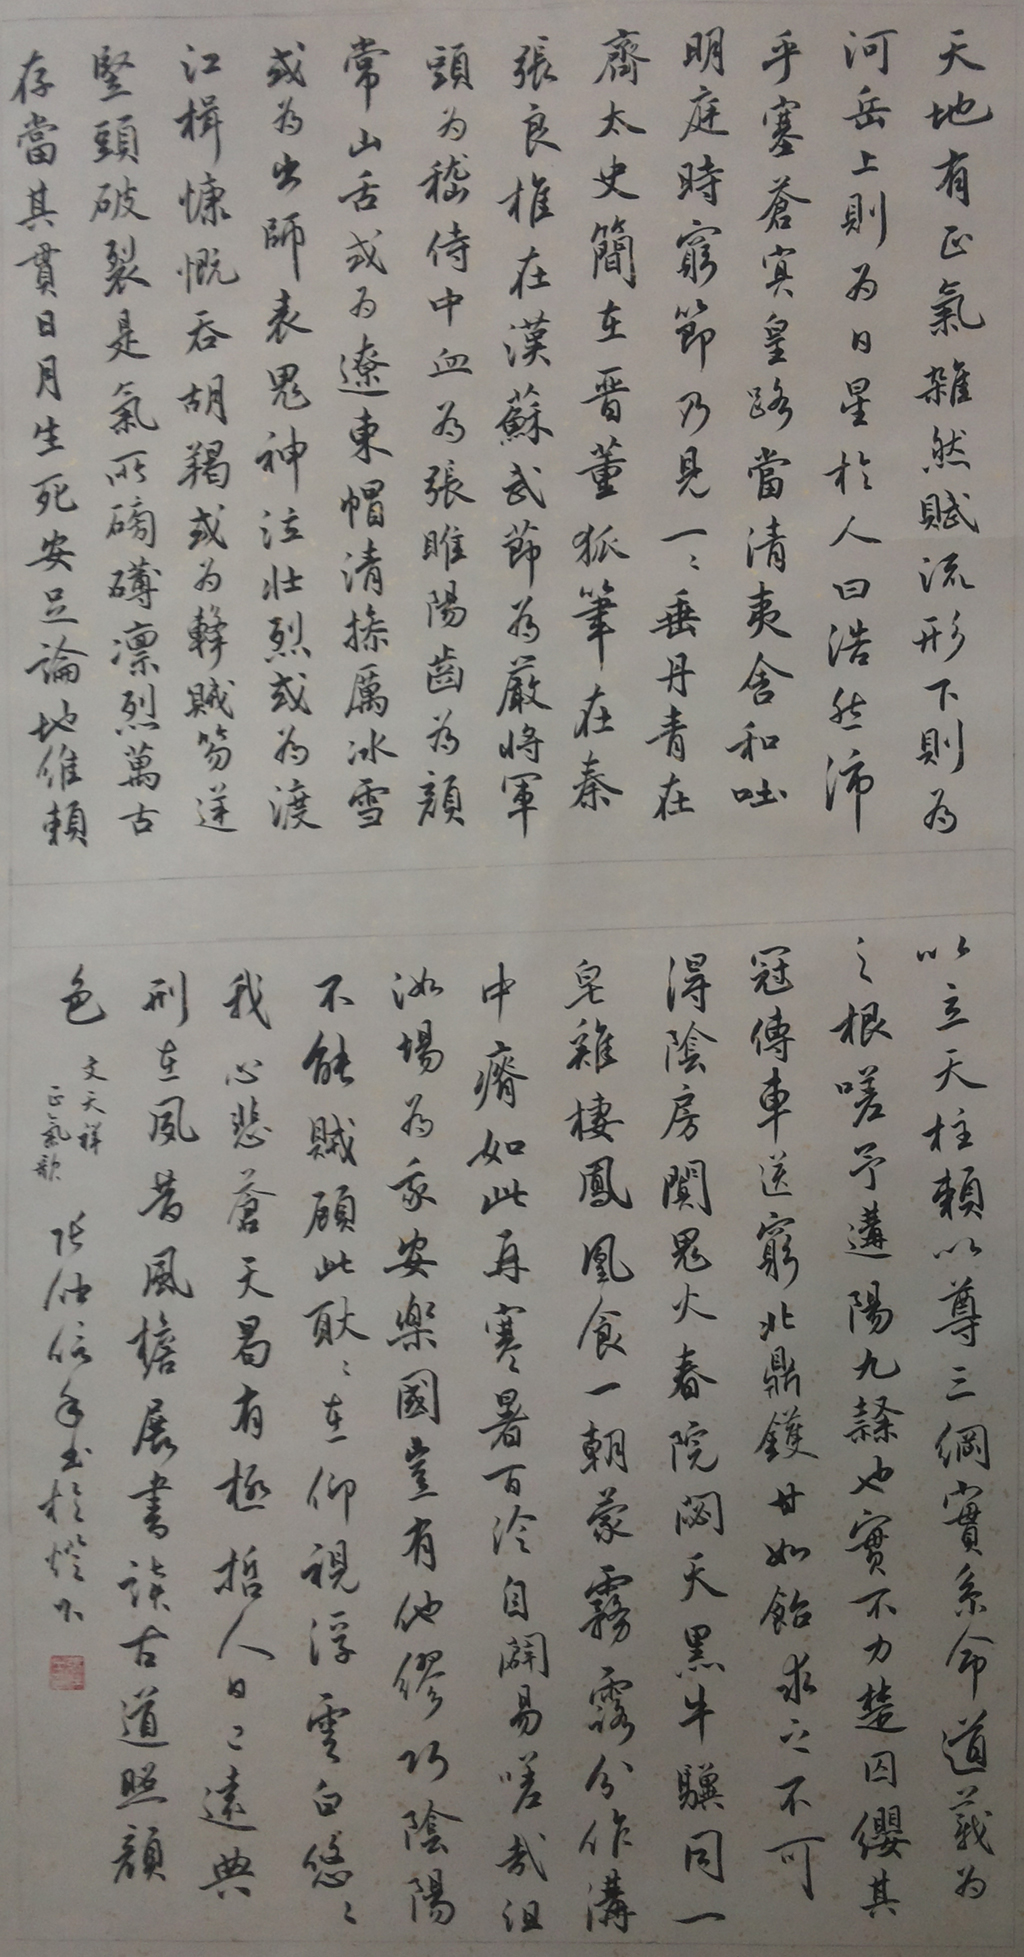 天地有正氣雜然賦流形下則為
河岳上則為日星於人曰浩然沛
乎塞蒼冥皇路當清夷含和吐
明庭時窮節乃見一々垂丹青在
齊太史簡在晋董狐筆在秦
張良椎在漢蘇武節為嚴將軍
頭為嵇侍中血為張睢陽齒為顏
常山舌或為遼東帽清操厲冰雪
或為出師表鬼神泣壯烈或為渡
江楫慷慨吞胡羯或為擊賊笏逆
豎頭破裂是氣所磅礴凛烈萬古
存當其貫日月生死安足論地維賴
以立天柱賴以尊三綱實系命道義為
之根嗟予遘陽九隸也實不力楚囚纓其
冠傳車送窮北鼎鑊甘如飴求之不可
得陰房闃鬼火春院閟天黑牛驥同一
皂雞棲鳳凰食一朝蒙霧露分作溝
中瘠如此再寒暑百沴自闢易嗟哉沮
洳場為我安樂國豈有他繆巧陰陽
不能賊顧此耿々在仰視浮雲白悠々
我心悲蒼天曷有極哲人日已遠典
刑在夙昔風檐展書讀古道照顏
色
文天祥
正氣歌
張仲信手書於燈下